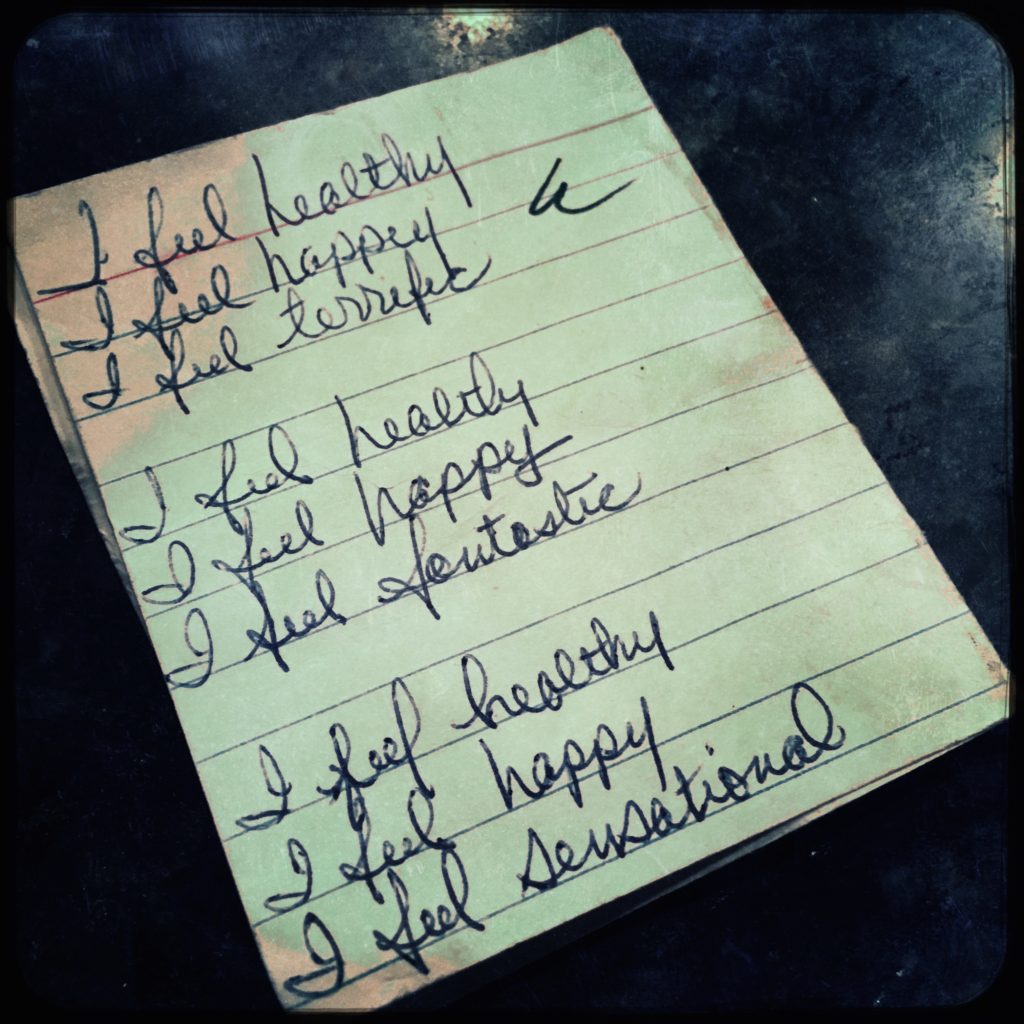 I feel healthy
I feel happy
I feel terrific
I feel healthy
I feel happy
I feel fantastic
I feel healthy
I feel happy
I feel sensational